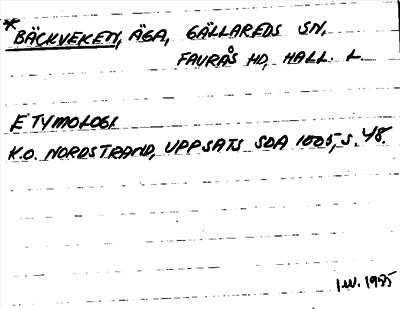 *BÄCKVEKEN, ÄGA, GÄLLAREDS SN.
FAURÅS HD, HALL. L.
ETYMOLOGI.
K.O. NORDSTRAND, UPPSATS SDA 1005, S. 48.
I.W. 1985